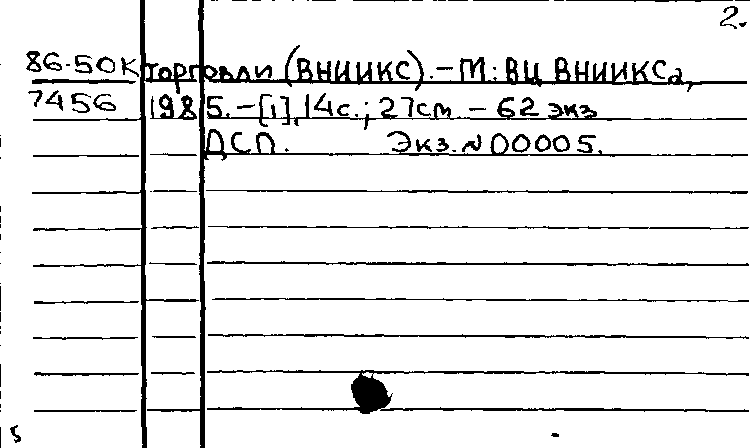 2.
86-50К торговли (ВНИИКС). – М: ВЦ ВНИИКСа,
7456 1985. – [1], 14с.; 27см – 62 экз
ДСП. Экз. № 00005.
5